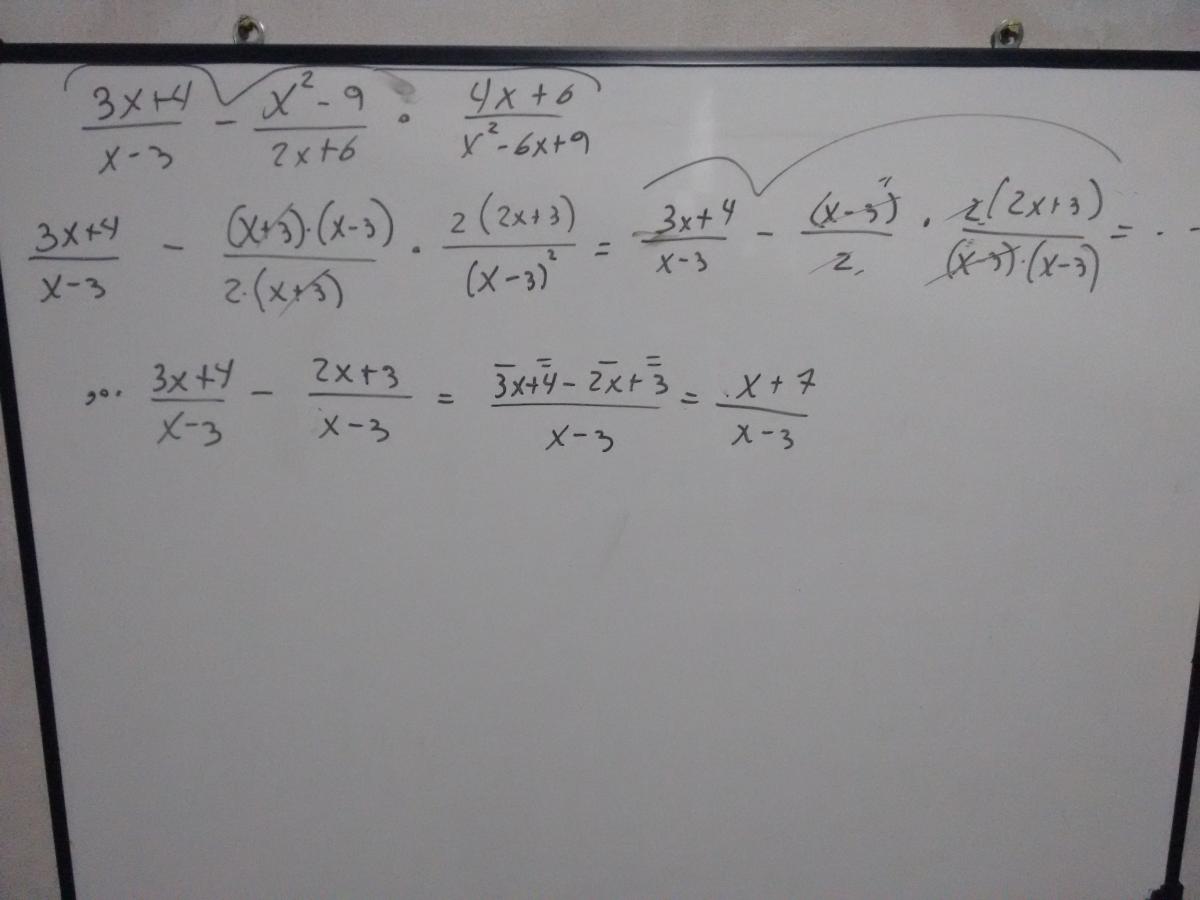 (3x+4)/(x-3) - (x²-9)/(2x+6) · (4x+6)/(x²-6x+9)
(3x+4)/(x-3) - ((x+3)·(x-3))/(2·(x+3)) · (2(2x+3))/((x-3)²) = (3x+4)/(x-3) - (x-3)/2 · (2(2x+3))/((x-3)·(x-3)) = . -
... (3x+4)/(x-3) - (2x+3)/(x-3) = (3x+4-2x+3)/(x-3) = (x+7)/(x-3)